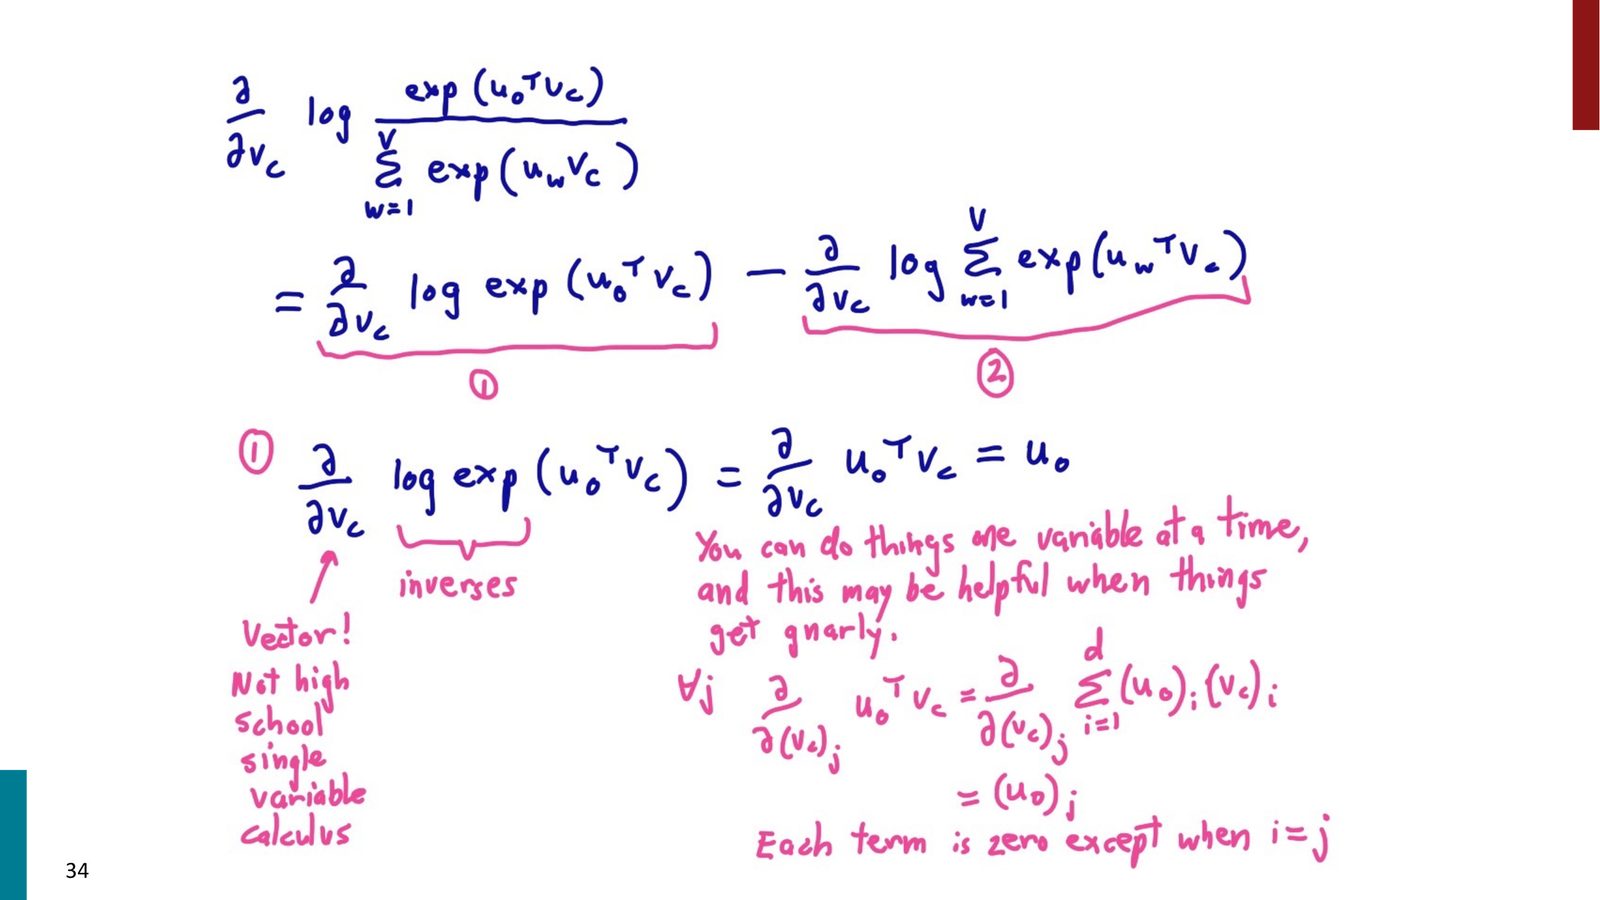 ∂/∂v_c log exp(u_o^T v_c) / Σ_{w=1}^{V} exp(u_w v_c)
= ∂/∂v_c log exp(u_o^T v_c) − ∂/∂v_c log Σ_{w=1}^{V} exp(u_w^T v_c)
① ②
① ∂/∂v_c log exp(u_o^T v_c) = ∂/∂v_c u_o^T v_c = u_o
inverses
Vector!
Not high
school
single
variable
calculus
You can do things one variable at a time,
and this may be helpful when things
get gnarly.
∀j ∂/∂(v_c)_j u_o^T v_c = ∂/∂(v_c)_j Σ_{i=1}^{d} (u_o)_i (v_c)_i
= (u_o)_j
Each term is zero except when i=j
34